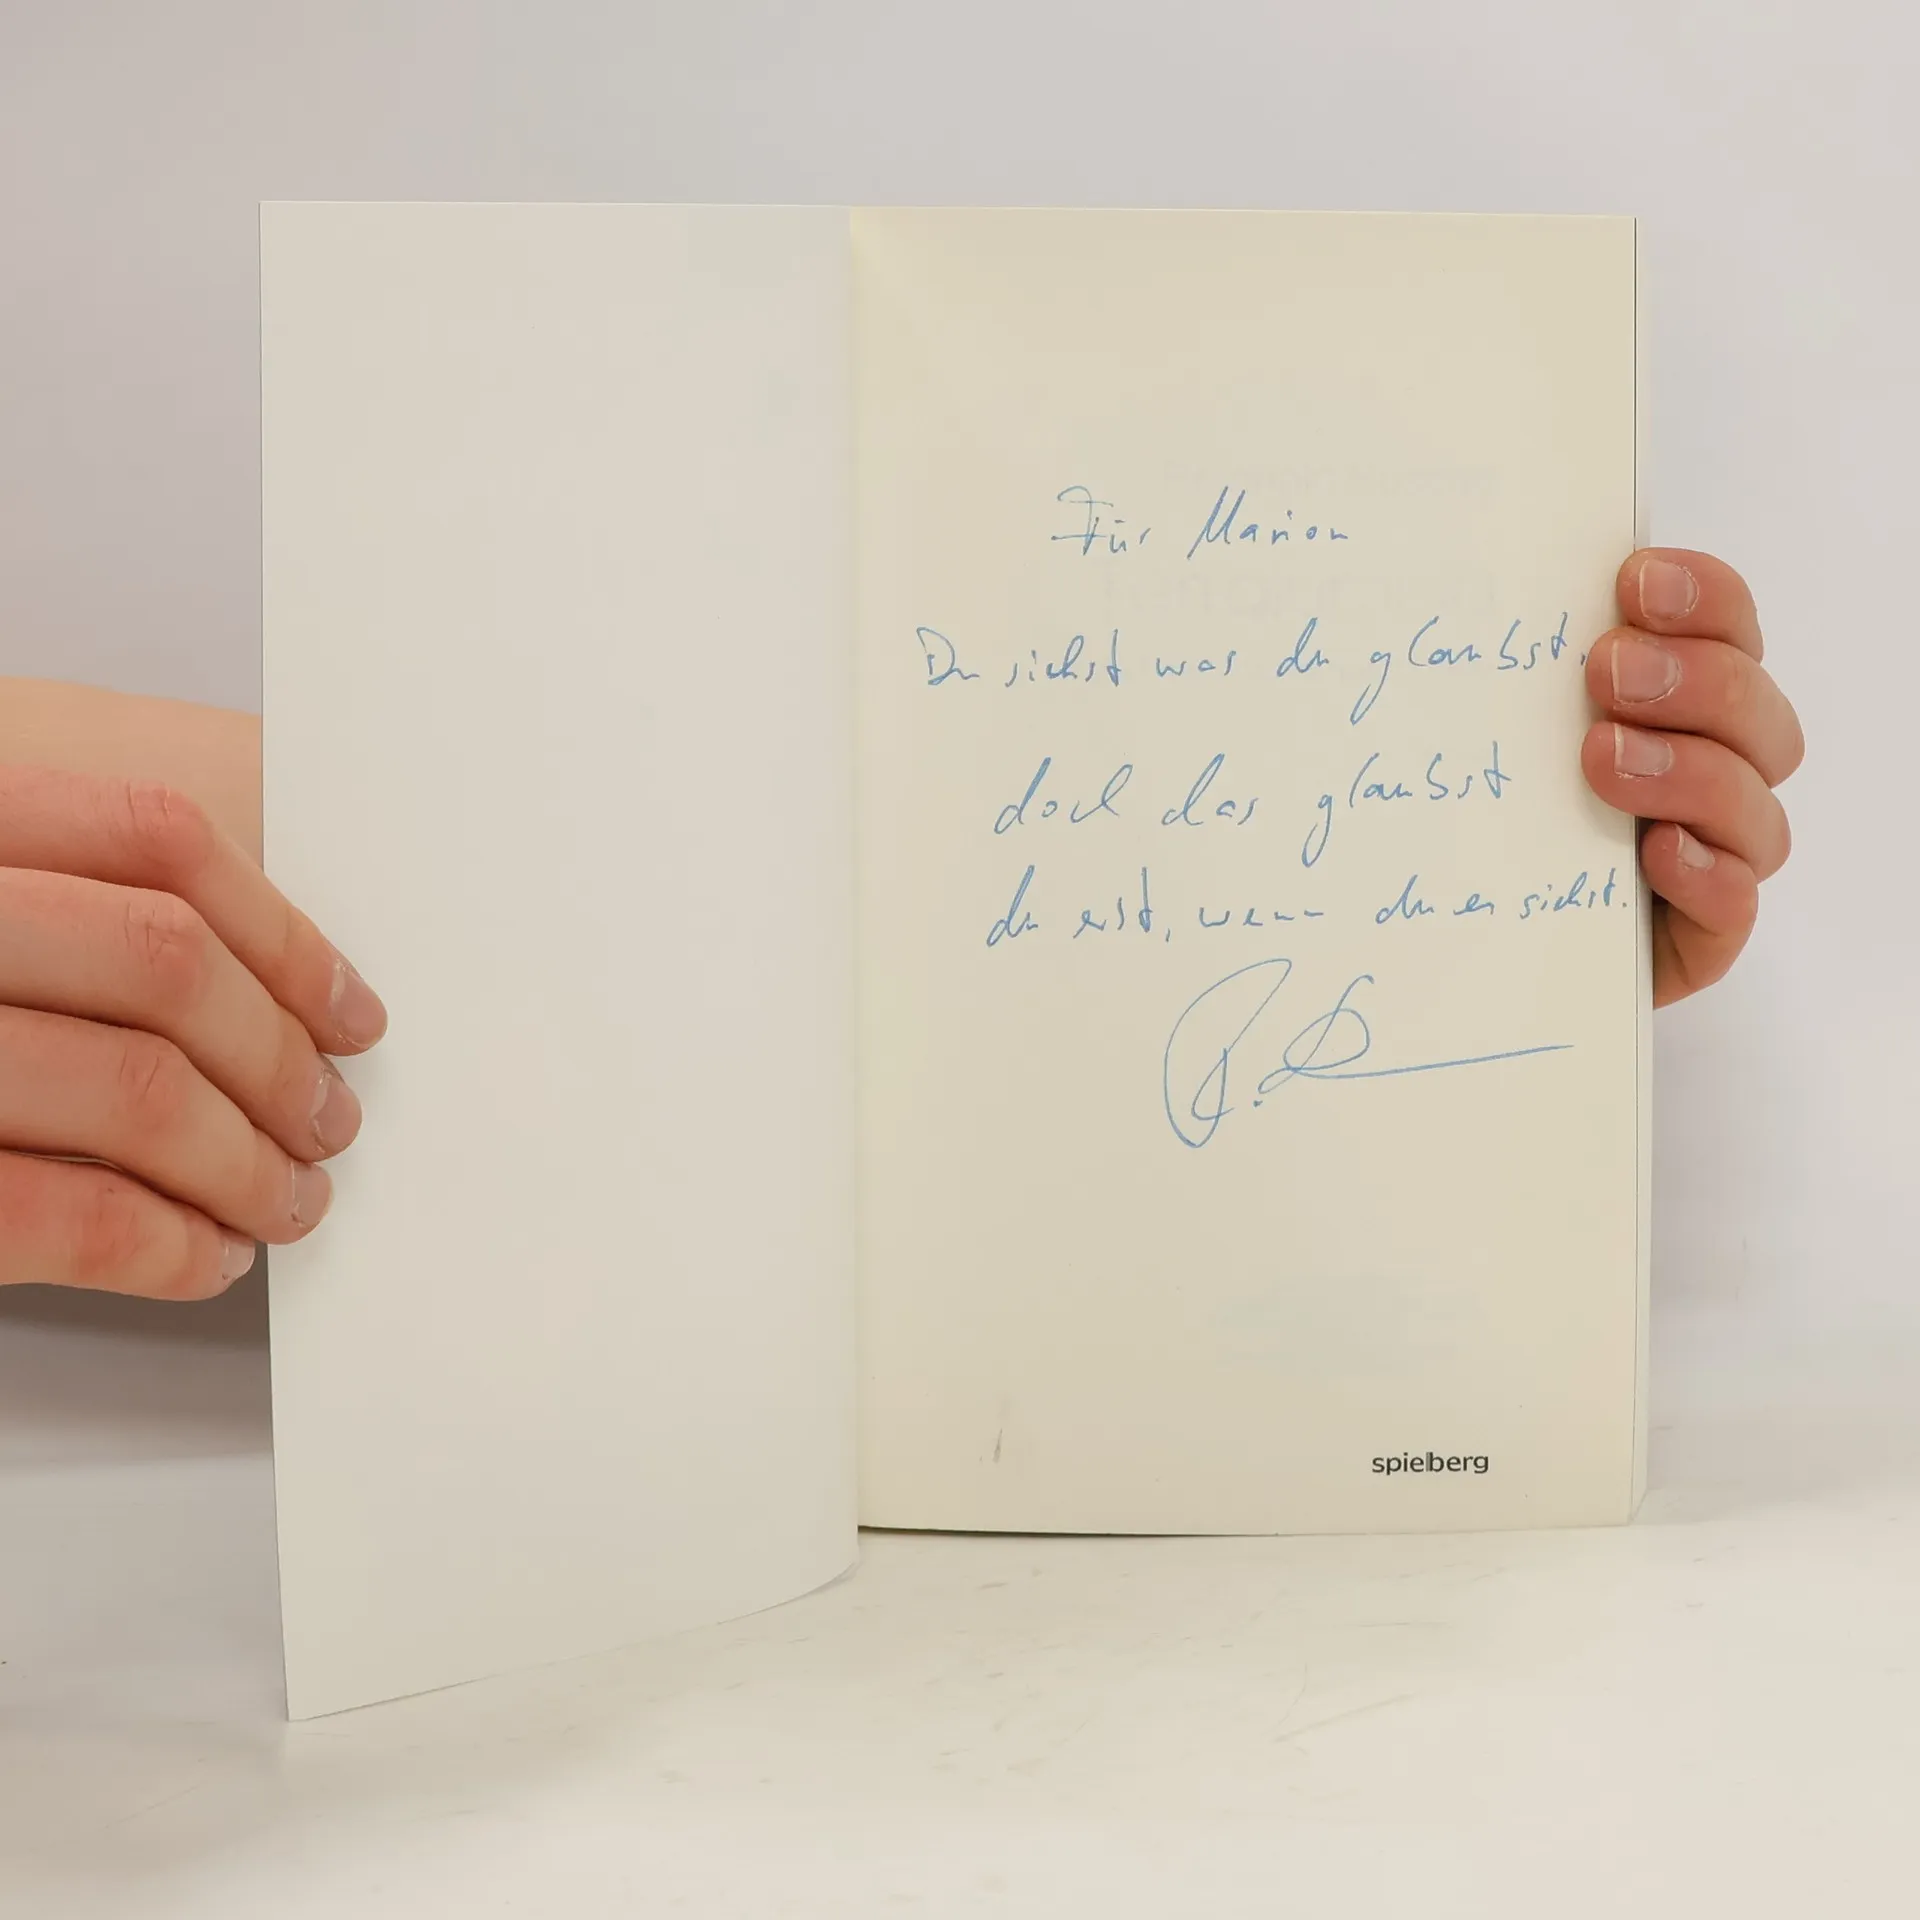 Für Marion
Du siehst was du glaubst,
doch das glaubst
du erst, wenn du es siehst.
spielberg